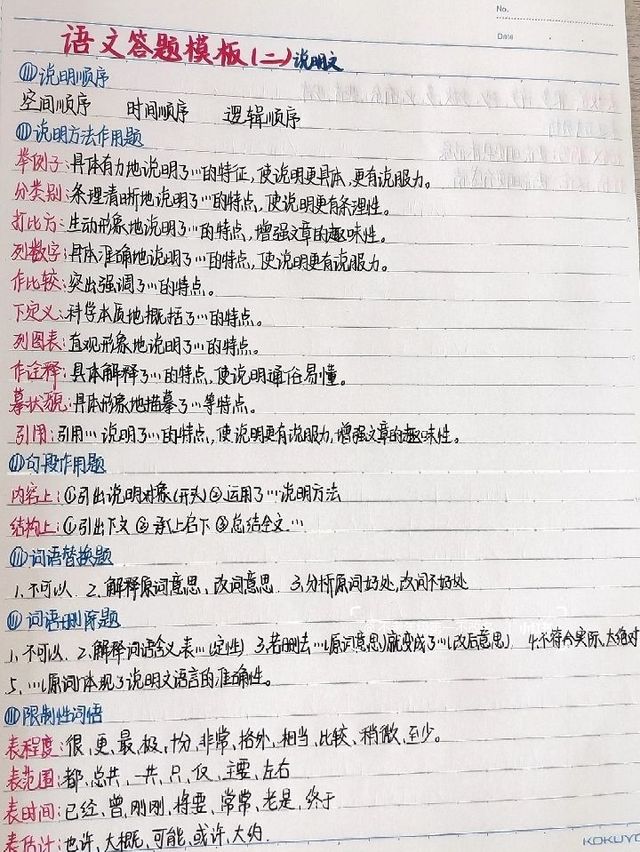 No.
Date
语文答题模板(二)说明文
说明顺序
空间顺序 时间顺序 逻辑顺序
说明方法作用题
举例子:具体有力地说明了…的特征,使说明更具体,更有说服力。
分类别:条理清晰地说明了…的特点,使说明更有条理性。
打比方:生动形象地说明了…的特点,增强文章的趣味性。
列数字:具体准确地说明了…的特点,使说明更有说服力。
作比较:突出强调了…的特点。
下定义:科学本质地概括了…的特点。
列图表:直观形象地说明了…的特点。
作诠释:具体解释了…的特点,使说明通俗易懂。
摹状貌:具体形象地描摹了…等特点。
引用:引用…说明了…的特点,使说明更有说服力,增强文章的趣味性。
句段作用题
内容上:①引出说明对象(开头)②运用了…说明方法
结构上:①引出下文 ②承上启下 ③总结全文…
词语替换题
1.不可以. 2.解释原词意思、改词意思 3.分析原词好处,改词不好处
词语删除题
1.不可以. 2.解释词语含义,表…(定性) 3.若删去…(原词意思)就变成了…(改后意思) 4.不符合实际,太绝对
5.…(原词)体现了说明文语言的准确性。
限制性词语
表程度:很、更、最、极、十分、非常、格外、相当、比较、稍微、至少。
表范围:都、总共、一共、只、仅、主要、左右
表时间:已经、曾、刚刚、将要、常常、老是、终于
表估计:也许、大概、可能、或许、大约.
KOKUYO